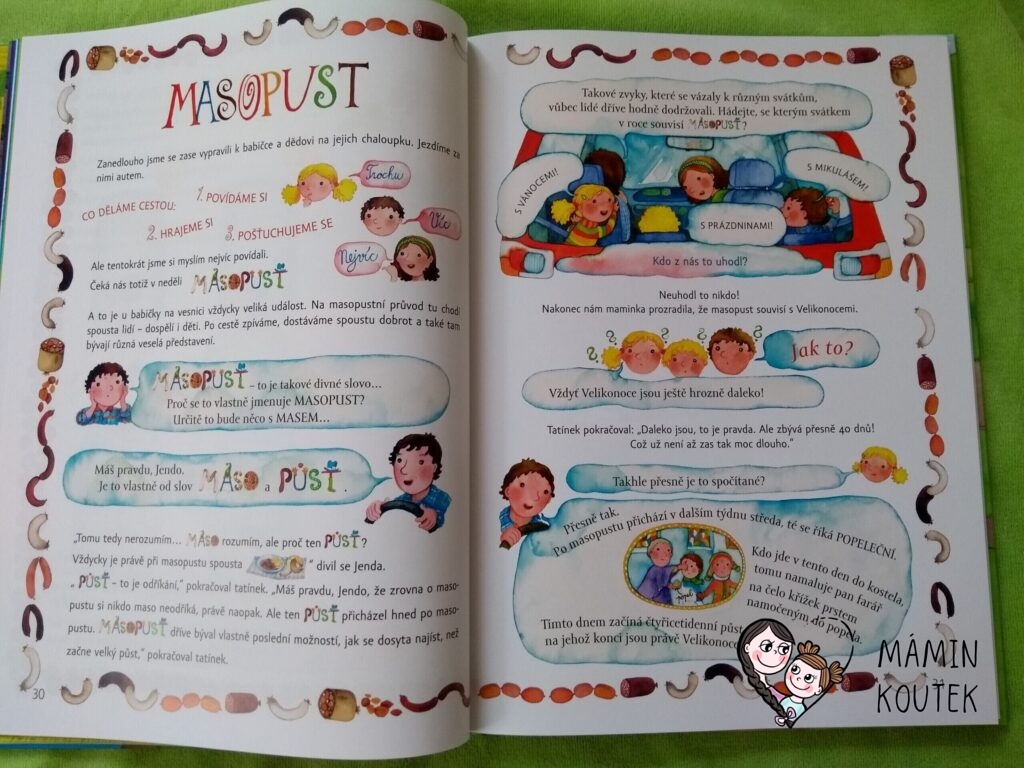 MASOPUST
Zanedlouho jsme se zase vypravili k babičce a dědovi na jejich chaloupku. Jezdíme za
nimi autem.
CO DĚLÁME CESTOU:
1. POVÍDÁME SI
Trochu
2. HRAJEME SI
Víc
3. POŠŤUCHUJEME SE
Nejvíc
Ale tentokrát jsme si myslím nejvíc povídali.
Čeká nás totiž v neděli MASOPUST
A to je u babičky na vesnici vždycky veliká událost. Na masopustní průvod tu chodí
spousta lidí – dospělí i děti. Po cestě zpíváme, dostáváme spoustu dobrot a také tam
bývají různá veselá představení.
MASOPUST – to je takové divné slovo...
Proč se to vlastně jmenuje MASOPUST?
Určitě to bude něco s MASEM...
Máš pravdu, Jendo.
Je to vlastně od slov MASO a PŮST.
„Tomu tedy nerozumím... MASO rozumím, ale proč ten PŮST?
Vždycky je právě při masopustu spousta “ divil se Jenda.
„PŮST – to je odříkání,“ pokračoval tatínek. „Máš pravdu, Jendo, že zrovna o maso-
pustu si nikdo maso neodříká, právě naopak. Ale ten PŮST přicházel hned po maso-
pustu. MASOPUST dříve býval vlastně poslední možností, jak se dosyta najíst, než
začne velký půst,“ pokračoval tatínek.
30
Takové zvyky, které se vázaly k různým svátkům,
vůbec lidé dříve hodně dodržovali. Hádejte, se kterým svátkem
v roce souvisí MASOPUST?
S VÁNOCEMI!
S MIKULÁŠEM!
S PRÁZDNINAMI!
Kdo z nás to uhodl?
Neuhodl to nikdo!
Nakonec nám maminka prozradila, že masopust souvisí s Velikonocemi.
? ? ? ?
Jak to?
Vždyť Velikonoce jsou ještě hrozně daleko!
Tatínek pokračoval: „Daleko jsou, to je pravda. Ale zbývá přesně 40 dnů!
Což už není až zas tak moc dlouho.“
Takhle přesně je to spočítané?
Přesně tak.
Po masopustu přichází v dalším týdnu středa, té se říká POPELEČNÍ.
Kdo jde v tento den do kostela,
tomu namaluje pan farář
na čelo křížek prstem
namočeným do popela.
popel
Tímto dnem začíná čtyřicetidenní půst
na jehož konci jsou právě
MÁMIN
KOUTEK